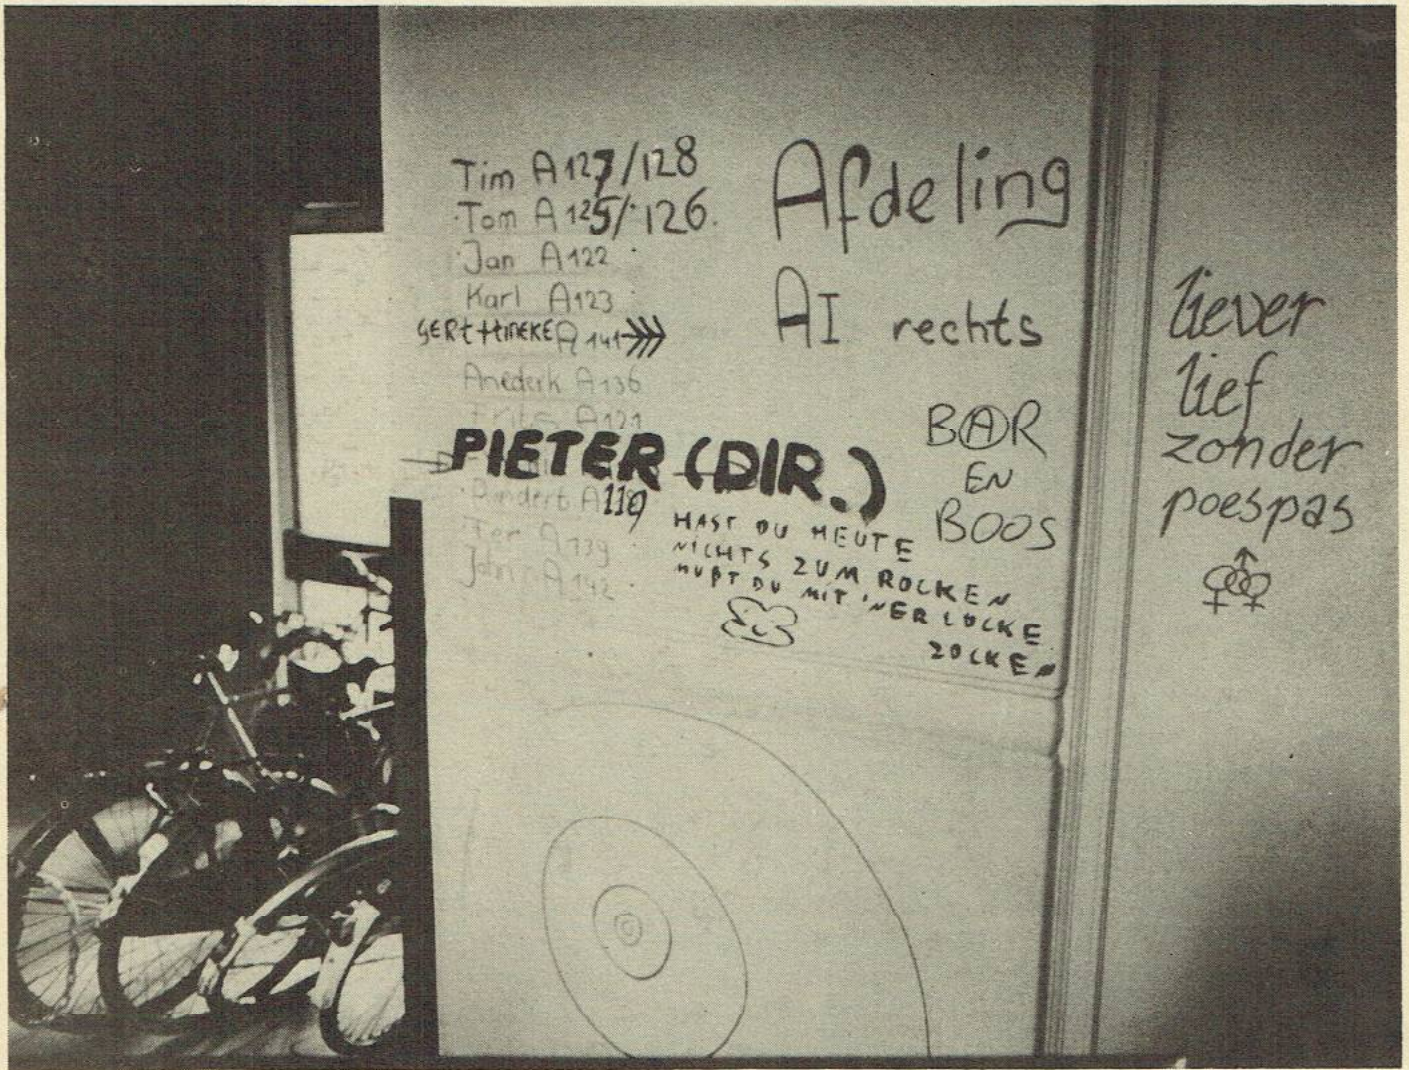 Tim A 127/128
Tom A 125/126.
Jan A 122
Karl A 123
GERt + HINEKE A 141
Anederik A 136
Frits A 121
PIETER (DIR.)
A 119
Ter A 139
John A 142
Afdeling
AI rechts
BAR
EN
BOOS
HAST DU HEUTE
NICHTS ZUM ROCKEN
MUßT DU MIT 'NER LOCKE
ZOCKEN
liever
lief
zonder
poespas